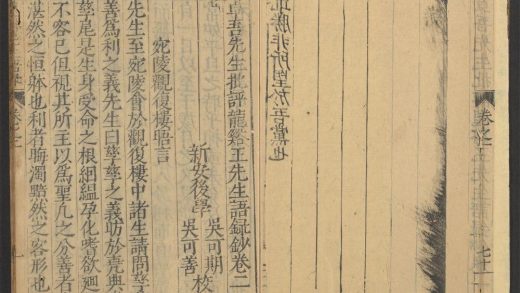 卷之一
七十一
非所望於吾黨也
卓吾先生批評龍谿王先生語錄鈔卷二
新安後學
吳可期
吳可善
校
宛陵觀復樓晤言
先生至宛陵會於觀復樓中諸生請問孳
善爲利之義先生曰孳孳之義昉於堯典
孳尾是生身受命之根絪縕孕化嗜欲廻
不容已但視其所主以爲聖凡之分善者
湛然之恒躰也利者晦濁黯然之客形也